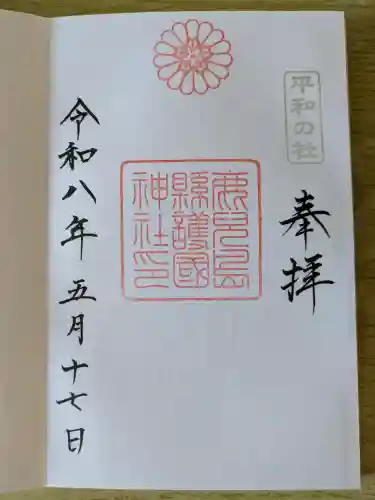 平和の社
奉拝
鹿児島
縣護國
神社印
令和八年五月十七日